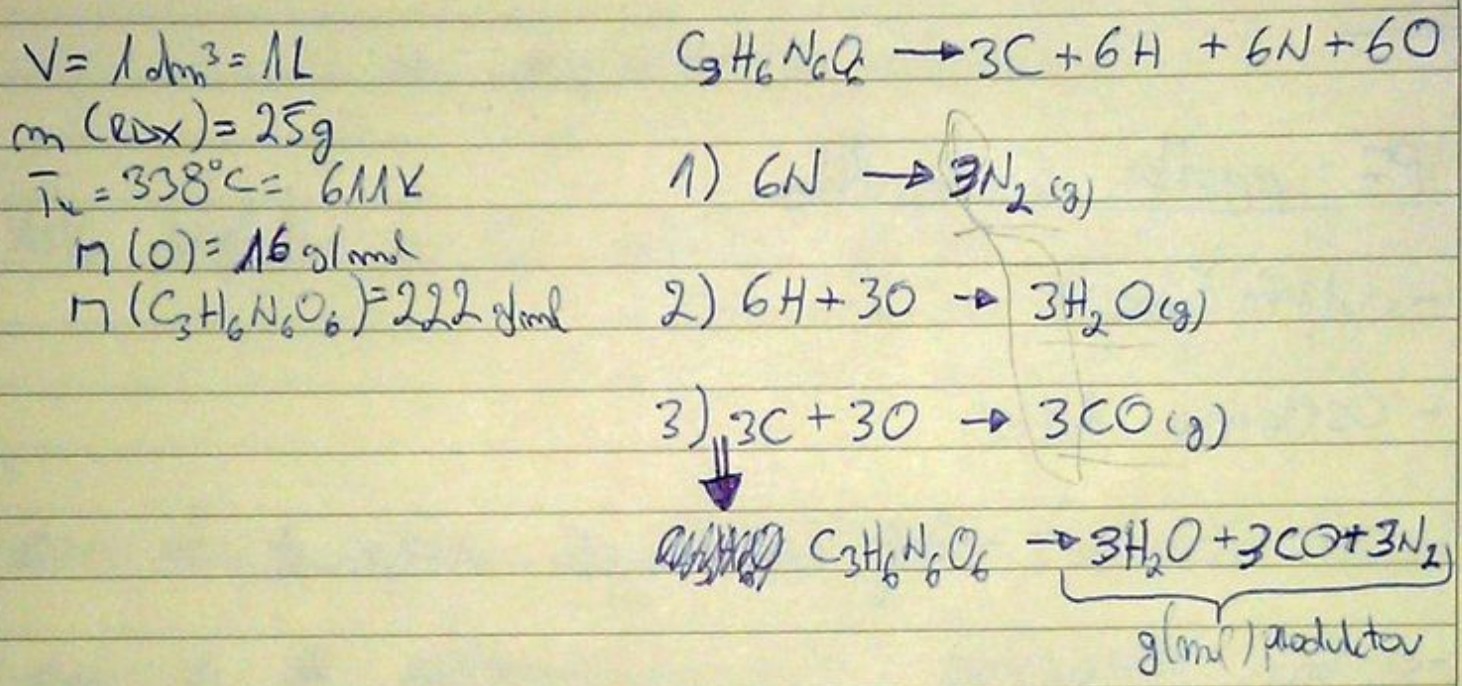 V = 1 dm³ = 1L
m (RDX) = 25g
Tv = 338°C = 611K
M (O) = 16 g/mol
M (C₃H₆N₆O₆) = 222 g/mol
C₃H₆N₆O₆ → 3C + 6H + 6N + 6O
1) 6N → 3N₂ (g)
2) 6H + 3O → 3H₂O (g)
3) 3C + 3O → 3CO (g)
⇓
C₃H₆N₆O₆ → 3H₂O + 3CO + 3N₂
produktov